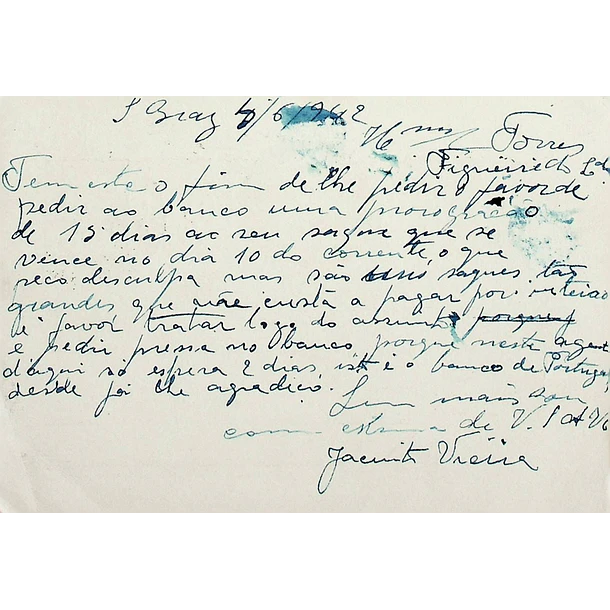 S Braz 4/6/942
Torres
Figueiredo Lda
Tem este o fim de lhe pedir o favor de
pedir ao banco uma prorogação
de 15 dias ao seu saque que se
vence no dia 10 do corrente, o que
peço desculpa mas são uns saques tão
grandes que não custa a pagar por inteiro
é favor tratar logo do assunto porque
e pedir pressa no banco porque neste agent
d'aqui só espera 2 dias, isto é o banco de Portugal
desde já lhe agradeço.
Sem mais sou
com estima de V.
Jacinto Vieira